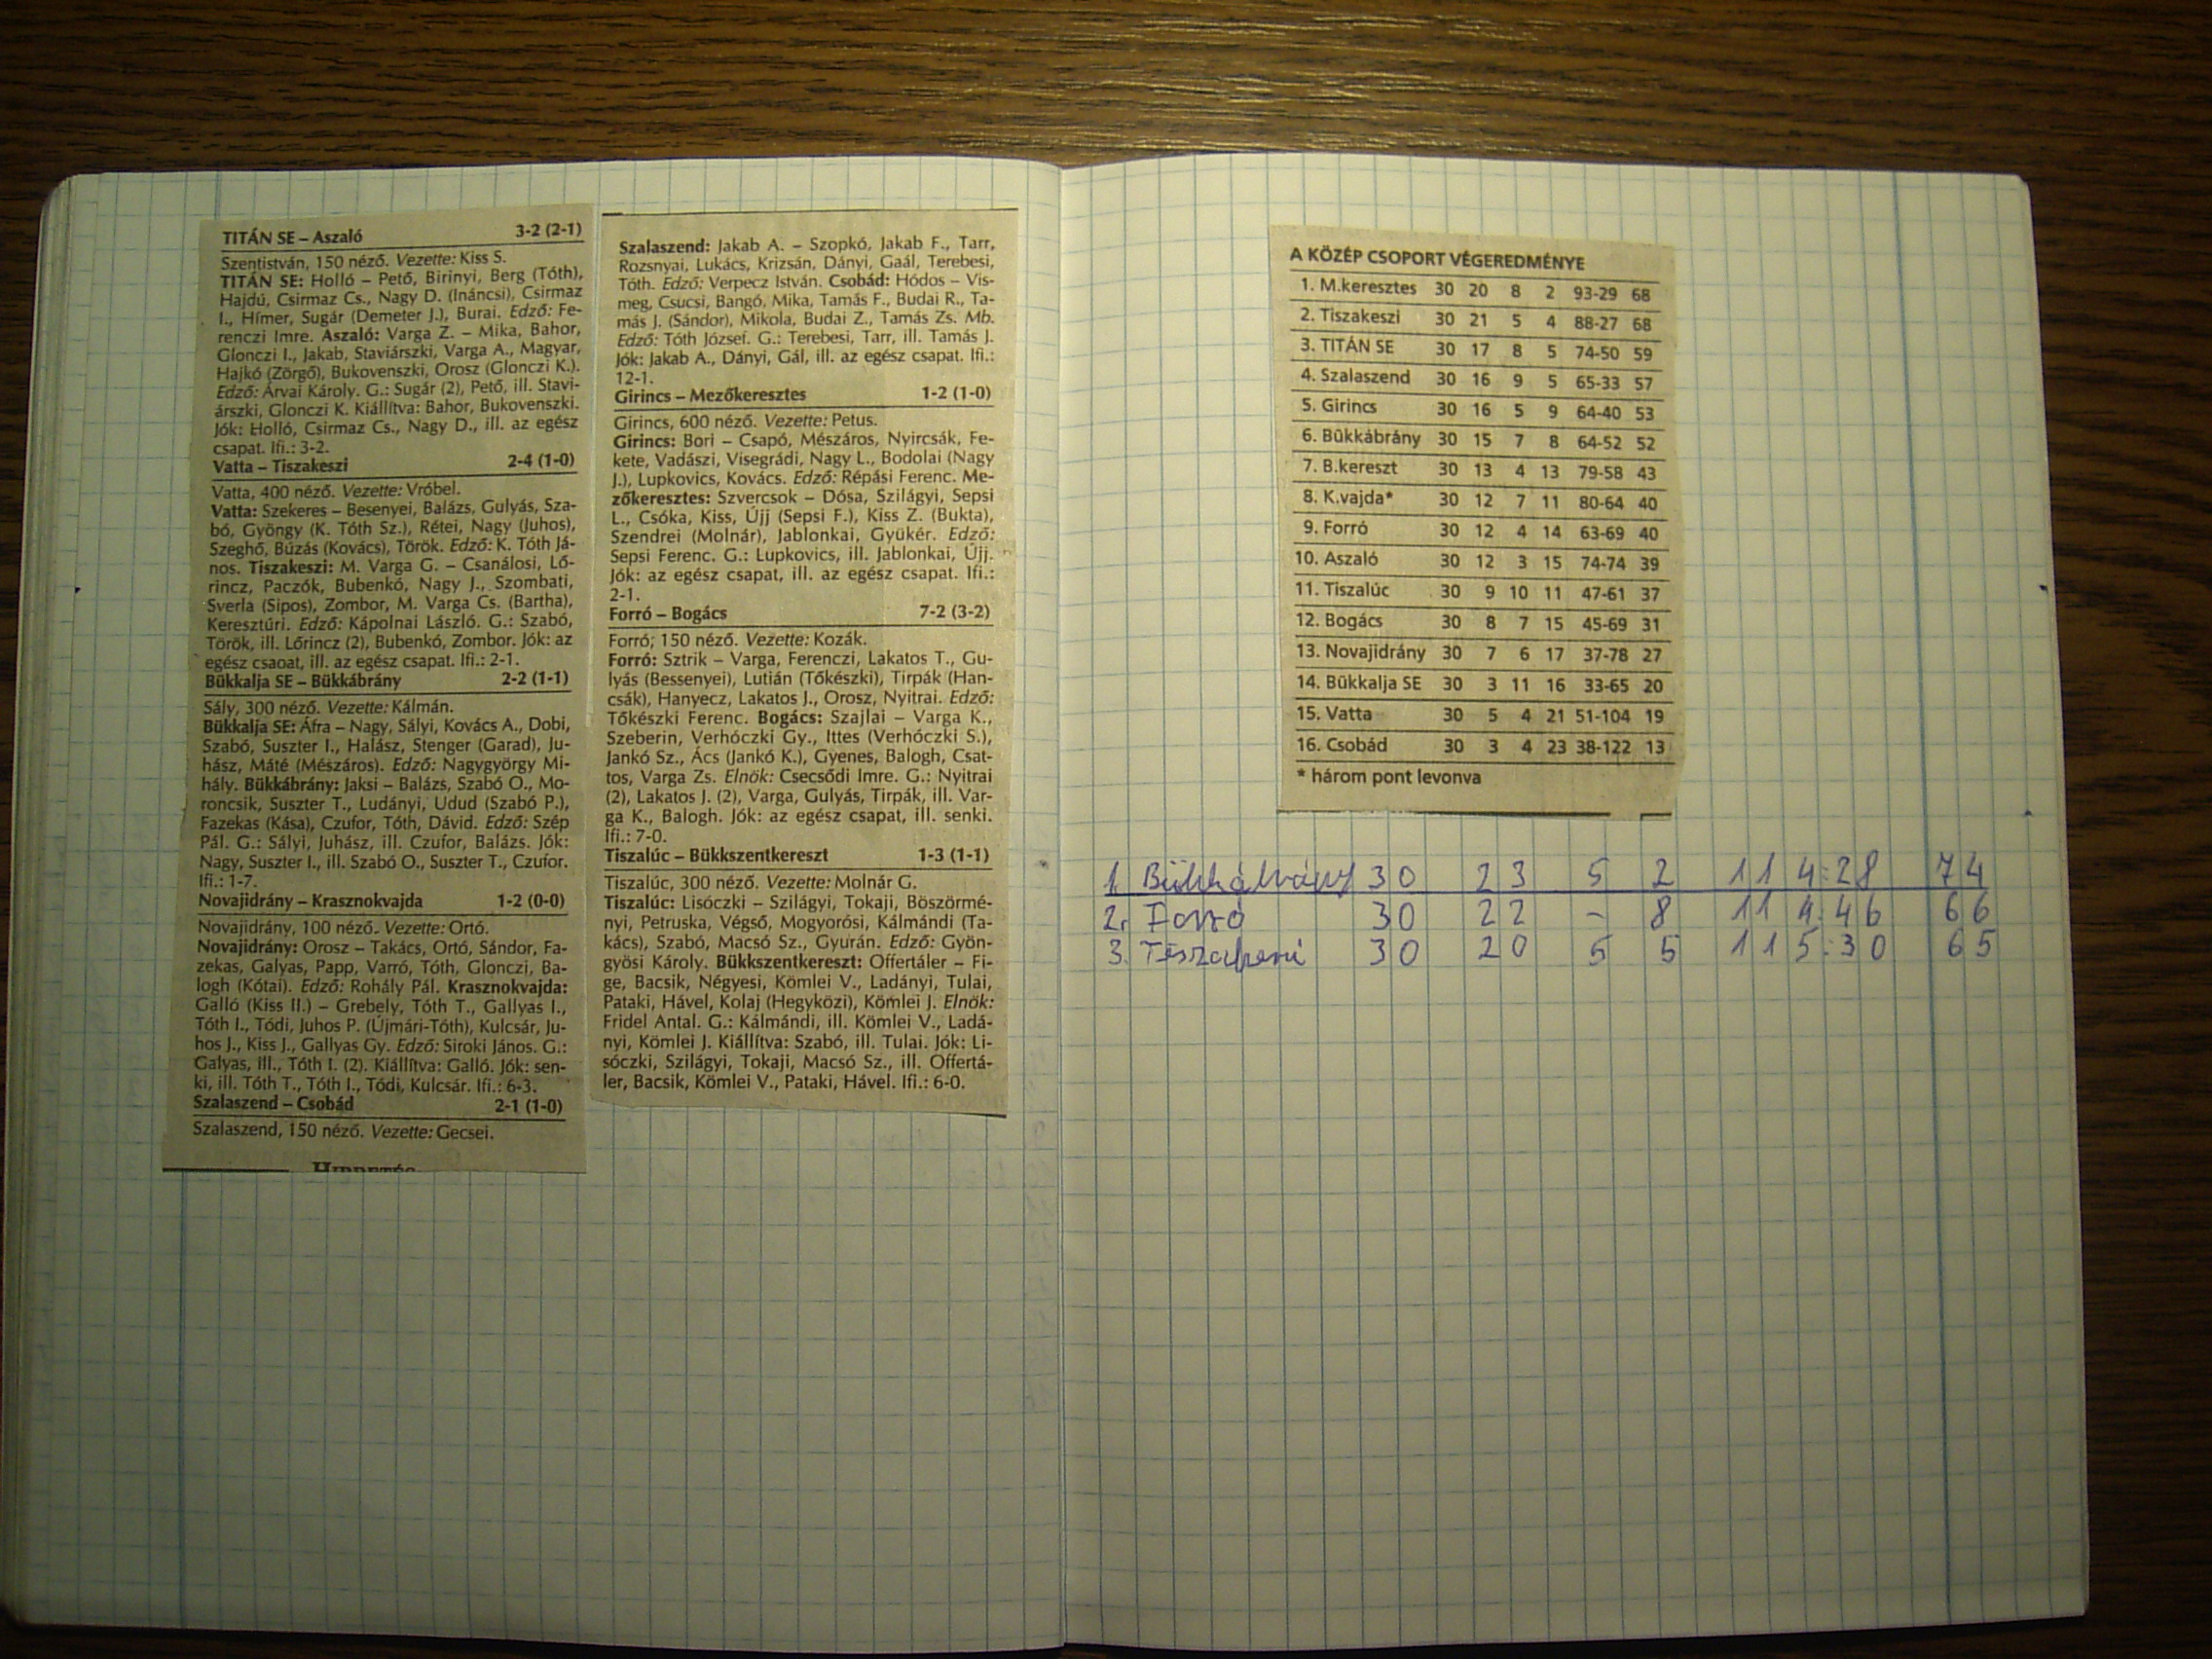 TITÁN SE – Aszaló 3-2 (2-1)
Szentistván, 150 néző. Vezette: Kiss S.
TITÁN SE: Holló – Pető, Birinyi, Berg (Tóth),
Hajdú, Csirmaz Cs., Nagy D. (Ináncsi), Csirmaz
I., Hímer, Sugár (Demeter J.), Burai. Edző: Fe-
renczi Imre. Aszaló: Varga Z. – Mika, Bahor,
Glonczi I., Jakab, Staviárszki, Varga A., Magyar,
Hajkó (Zörgő), Bukovenszki, Orosz (Glonczi K.).
Edző: Árvai Károly. G.: Sugár (2), Pető, ill. Stavi-
árszki, Glonczi K. Kiállítva: Bahor, Bukovenszki.
Jók: Holló, Csirmaz Cs., Nagy D., ill. az egész
csapat. Ifi.: 3-2.
Vatta – Tiszakeszi 2-4 (1-0)
Vatta, 400 néző. Vezette: Vróbel.
Vatta: Szekeres – Besenyei, Balázs, Gulyás, Sza-
bó, Gyöngy (K. Tóth Sz.), Rétei, Nagy (Juhos),
Szeghő, Búzás (Kovács), Török. Edző: K. Tóth Já-
nos. Tiszakeszi: M. Varga G. – Csanálosi, Lő-
rincz, Paczók, Bubenkó, Nagy J., Szombati,
Sverla (Sipos), Zombor, M. Varga Cs. (Bartha),
Keresztúri. Edző: Kápolnai László. G.: Szabó,
Török, ill. Lőrincz (2), Bubenkó, Zombor. Jók: az
egész csaoat, ill. az egész csapat. Ifi.: 2-1.
Bükkalja SE – Bükkábrány 2-2 (1-1)
Sály, 300 néző. Vezette: Kálmán.
Bükkalja SE: Áfra – Nagy, Sályi, Kovács A., Dobi,
Szabó, Suszter I., Halász, Stenger (Garad), Ju-
hász, Máté (Mészáros). Edző: Nagygyörgy Mi-
hály. Bükkábrány: Jaksi – Balázs, Szabó O., Mo-
roncsik, Suszter T., Ludányi, Udud (Szabó P.),
Fazekas (Kása), Czufor, Tóth, Dávid. Edző: Szép
Pál. G.: Sályi, Juhász, ill. Czufor, Balázs. Jók:
Nagy, Suszter I., ill. Szabó O., Suszter T., Czufor.
Ifi.: 1-7.
Novajidrány – Krasznokvajda 1-2 (0-0)
Novajidrány, 100 néző. Vezette: Ortó.
Novajidrány: Orosz – Takács, Ortó, Sándor, Fa-
zekas, Galyas, Papp, Varró, Tóth, Glonczi, Ba-
logh (Kótai). Edző: Rohály Pál. Krasznokvajda:
Galló (Kiss II.) – Grebely, Tóth T., Gallyas I.,
Tóth I., Tódi, Juhos P. (Újmári-Tóth), Kulcsár, Ju-
hos J., Kiss J., Gallyas Gy. Edző: Siroki János. G.:
Galyas, ill., Tóth I. (2). Kiállítva: Galló. Jók: sen-
ki, ill. Tóth T., Tóth I., Tódi, Kulcsár. Ifi.: 6-3.
Szalaszend – Csobád 2-1 (1-0)
Szalaszend, 150 néző. Vezette: Gecsei.
Szalaszend: Jakab A. – Szopkó, Jakab F., Tarr,
Rozsnyai, Lukács, Krizsán, Dányi, Gaál, Terebesi,
Tóth. Edző: Verpecz István. Csobád: Hódos – Vis-
meg, Csucsi, Bangó, Mika, Tamás F., Budai R., Ta-
más J. (Sándor), Mikola, Budai Z., Tamás Zs. Mb.
Edző: Tóth József. G.: Terebesi, Tarr, ill. Tamás J.
Jók: Jakab A., Dányi, Gál, ill. az egész csapat. Ifi.:
12-1.
Girincs – Mezőkeresztes 1-2 (1-0)
Girincs, 600 néző. Vezette: Petus.
Girincs: Bori – Csapó, Mészáros, Nyircsák, Fe-
kete, Vadászi, Visegrádi, Nagy L., Bodolai (Nagy
J.), Lupkovics, Kovács. Edző: Répási Ferenc. Me-
zőkeresztes: Szvercsok – Dósa, Szilágyi, Sepsi
L., Csóka, Kiss, Újj (Sepsi F.), Kiss Z. (Bukta),
Szendrei (Molnár), Jablonkai, Gyükér. Edző:
Sepsi Ferenc. G.: Lupkovics, ill. Jablonkai, Újj.
Jók: az egész csapat, ill. az egész csapat. Ifi.:
2-1.
Forró – Bogács 7-2 (3-2)
Forró, 150 néző. Vezette: Kozák.
Forró: Sztrik – Varga, Ferenczi, Lakatos T., Gu-
lyás (Bessenyei), Lutián (Tőkészki), Tirpák (Han-
csák), Hanyecz, Lakatos J., Orosz, Nyitrai. Edző:
Tőkészki Ferenc. Bogács: Szajlai – Varga K.,
Szeberin, Verhóczki Gy., Ittes (Verhóczki S.),
Jankó Sz., Ács (Jankó K.), Gyenes, Balogh, Csat-
tos, Varga Zs. Elnök: Csecsődi Imre. G.: Nyitrai
(2), Lakatos J. (2), Varga, Gulyás, Tirpák, ill. Var-
ga K., Balogh. Jók: az egész csapat, ill. senki.
Ifi.: 7-0.
Tiszalúc – Bükkszentkereszt 1-3 (1-1)
Tiszalúc, 300 néző. Vezette: Molnár G.
Tiszalúc: Lisóczki – Szilágyi, Tokaji, Böszörmé-
nyi, Petruska, Végső, Mogyorósi, Kálmándi (Ta-
kács), Szabó, Macsó Sz., Gyurán. Edző: Gyön-
gyösi Károly. Bükkszentkereszt: Offertáler – Fi-
ge, Bacsik, Négyesi, Kömlei V., Ladányi, Tulai,
Pataki, Hável, Kolaj (Hegyközi), Kömlei J. Elnök:
Fridel Antal. G.: Kálmándi, ill. Kömlei V., Ladá-
nyi, Kömlei J. Kiállítva: Szabó, ill. Tulai. Jók: Li-
sóczki, Szilágyi, Tokaji, Macsó Sz., ill. Offertá-
ler, Bacsik, Kömlei V., Pataki, Hável. Ifi.: 6-0.
A KÖZÉP CSOPORT VÉGEREDMÉNYE
1. M.keresztes 30 20 8 2 93-29 68
2. Tiszakeszi 30 21 5 4 88-27 68
3. TITÁN SE 30 17 8 5 74-50 59
4. Szalaszend 30 16 9 5 65-33 57
5. Girincs 30 16 5 9 64-40 53
6. Bükkábrány 30 15 7 8 64-52 52
7. B.kereszt 30 13 4 13 79-58 43
8. K.vajda* 30 12 7 11 80-64 40
9. Forró 30 12 4 14 63-69 40
10. Aszaló 30 12 3 15 74-74 39
11. Tiszalúc 30 9 10 11 47-61 37
12. Bogács 30 8 7 15 45-69 31
13. Novajidrány 30 7 6 17 37-78 27
14. Bükkalja SE 30 3 11 16 33-65 20
15. Vatta 30 5 4 21 51-104 19
16. Csobád 30 3 4 23 38-122 13
* három pont levonva
1. Bükkábrány 30 23 5 2 114:28 74
2. Forró 30 22 – 8 114:46 66
3. 30 20 5 5 115:30 65